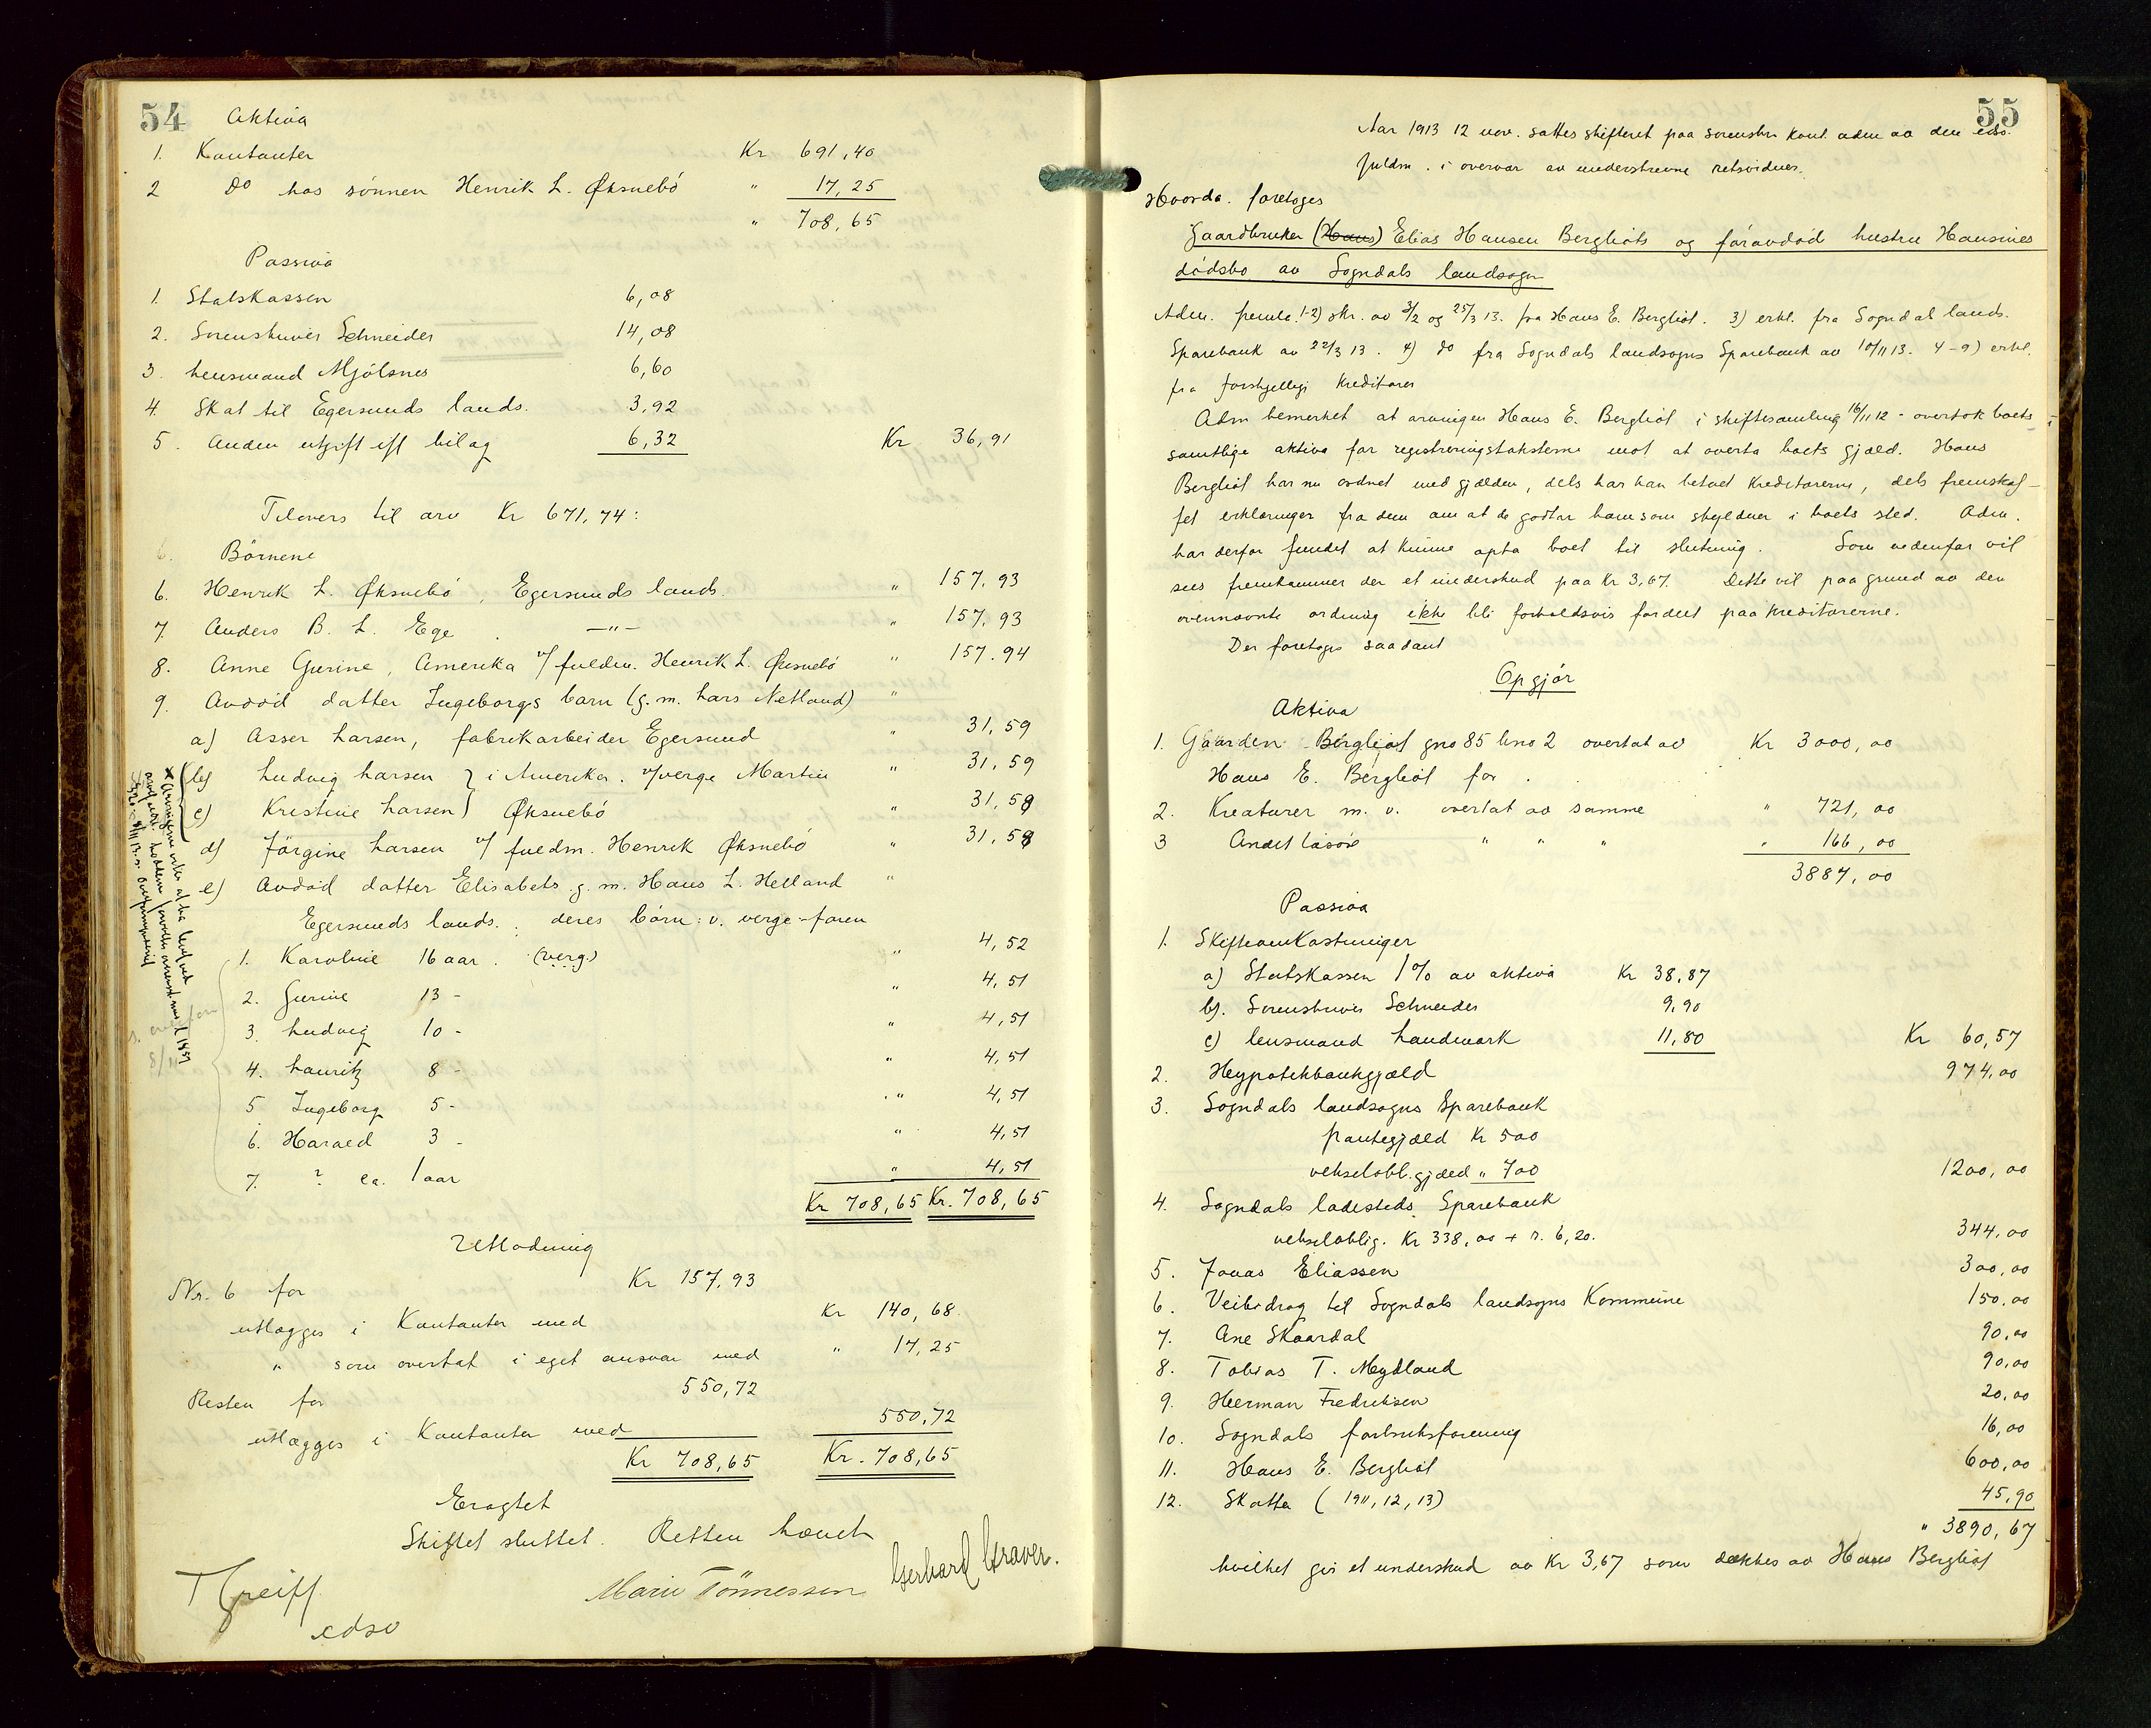 54
Aktiva
1. Kontanter Kr 691,40
2 do hos sönnen Henrik L. Øksnebö " 17,25
" 708,65
Passiva
1. Statskassen 6,08
2. Sorenskriver Schneider 14,08
3. Lensmand Mjölsnes 6,60
4. Skat til Egersunds lands. 3,92
5. Anden utgift eft bilag 6,32 Kr 36,91
Tilovers til arv Kr 671,74:
Börnene
6. Henrik L. Øksnebö, Egersunds lands. " 157,93
7. Anders B. L. Ege. —"— " 157,93
8. Anne Gurine, Amerika v/ fuldm. Henrik L. Øksnebö " 157.94
9. Avdöd datter Ingeborgs barn (g. m. Lars Netland) "
a) Asser Larsen, fabrikarbeider Egersund " 31,59
b) Ludvig Larsen } i Amerika. v/verge Martin " 31,59
c) Kristine Larsen } Øksnebö " 31,59
d) Jörgine Larsen v/ fuldm. Henrik Øksnebö " 31,58
e) Avdöd datter Elisabets g. m. Hans L. Helland "
Egersunds lands. deres börn: v. verge-faren
1. Karoline 16 aar. (verg.) " 4,52
2. Gurine 13 - " 4,51
3. Ludvig 10 - " 4,51
4. Lauritz 8 - " 4,51
5 Ingeborg 5 - " 4,51
6. Harald 3 - " 4,51
7. ? ca. 1 aar " 4,51
Kr 708,65 Kr. 708,65
Utlodning
Nr. 6 for Kr 157,93
utlægges i Kontanter med Kr 140,68.
" som overtat i eget ansvar med " 17,25
Resten for 550,72
utlægges i Kontanter med 550,72
Kr 708,65 Kr. 708,65
Eragtet
Skiftet sluttet. Retten hævet
T Greiff
edso
Marie Tönnessen Gerhard Graver.
55
Aar 1913 12 nov. sattes skifteret paa sorenskr. kont. adm av den edso.
fuldm. i overvær av underskrevne retsvidner.
Hvorda. foretoges
Gaardbruker (Hans) Elias Hansen Bergliots og foravdöd hustru Hansines
dödsbo av Sogndals landsogn
Adm. freml. 1-2) skr. av 3/2 og 25/3 13. fra Hans E. Bergliot. 3) erkl. fra Sogndal lands.
Sparebank av 22/3 13. 4) do fra Sogndals landsogns Sparebank av 10/11 13. 4-9) erkl.
fra forskjellige kreditorer
Adm bemerket at arvingen Hans E. Bergliot i skiftesamling 16/11 12 - overtok boets
samtlige aktiva for registreringstaksterne mot at overta boets gjæld. Hans
Bergliot har nu ordnet med gjælden, dels har han betalt kreditorerne, dels fremskaf-
fet erklæringer fra dem om at de godtar ham som skyldner i boets sted. Adm.
har derfor fundet at kunne opta boet til slutning. Som nedenfor vil
sees fremkommer der et underskud paa Kr 3,67. Dette vil paa grund av den
ovennævnte ordning ikke bli forholdsvis fordelt paa kreditorerne.
Der foretoges saadant
Opgjör
Aktiva
1. Gaarden Bergliot gno 85 bno 2 overtat av Kr 3000,00
Hans E. Bergliot for
2. Kreaturer m. v. overtat av samme " 721,00
3 Andet lösöre " " " " 166,00
3887,00
Passiva
1. Skifteomkostninger
a) Statskassen 1% av aktiva Kr 38,87
b). Sorenskriver Schneider 9,90
c) lensmand Landmark 11,80 Kr 60,57
2. Hypotekbankgjæld 974,00
3. Sogndals landsogns Sparebank
pantegjæld Kr 500
vekselobl. gjæld " 700 1200,00
4. Sogndals ladesteds Sparebank
vekseloblig. Kr 338,00 + r. 6,20. 344,00
5. Jonas Eliassen 300,00
6. Veibidrag til Sogndals landsogns Kommune 150,00
7. Ane Skaardal 90,00
8. Tobias T. Mydland 90,00
9. Herman Fredriksen 20,00
10. Sogndals forbruksforening 16,00
11. Hans E. Bergliot 600,00
12. Skatter (1911, 12, 13) 45,90
" 3890,67
hvilket gir et underskud av Kr 3,67 som dækkes av Hans Bergliot